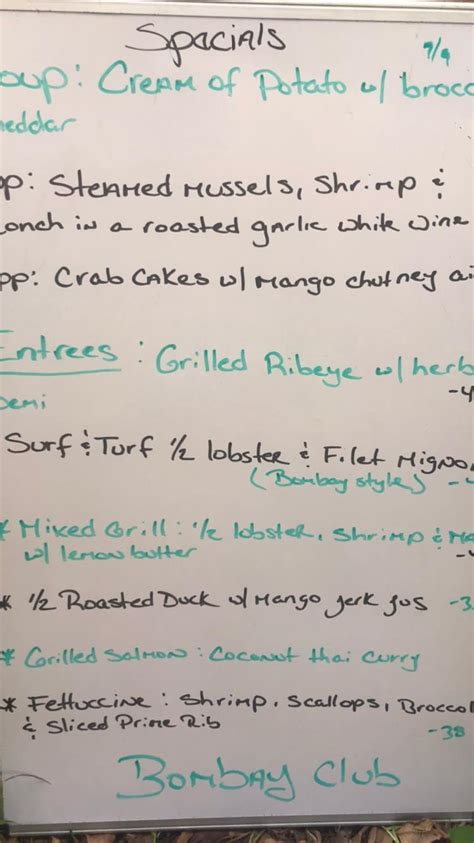 Spacials
9/9
oup: Cream of Potato w/ brocc
heddar
pp: Steamed Mussels, Shrimp &
Conch in a roasted garlic white wine
pp: Crab Cakes w/ Mango chutney ai
Entrees : Grilled Ribeye w/ herb
Demi
-4
Surf & Turf 1/2 lobster & Filet Migno
(Bombay style) -4
* Mixed Grill : 1/2 lobster, Shrimp & Ma
w/ lemon butter
* 1/2 Roasted Duck w/ Mango jerk jus -3
* Grilled Salmon : Coconut thai curry
* Fettuccine : Shrimp, Scallops, Broccol
& Sliced Prime Rib -38
Bombay Club